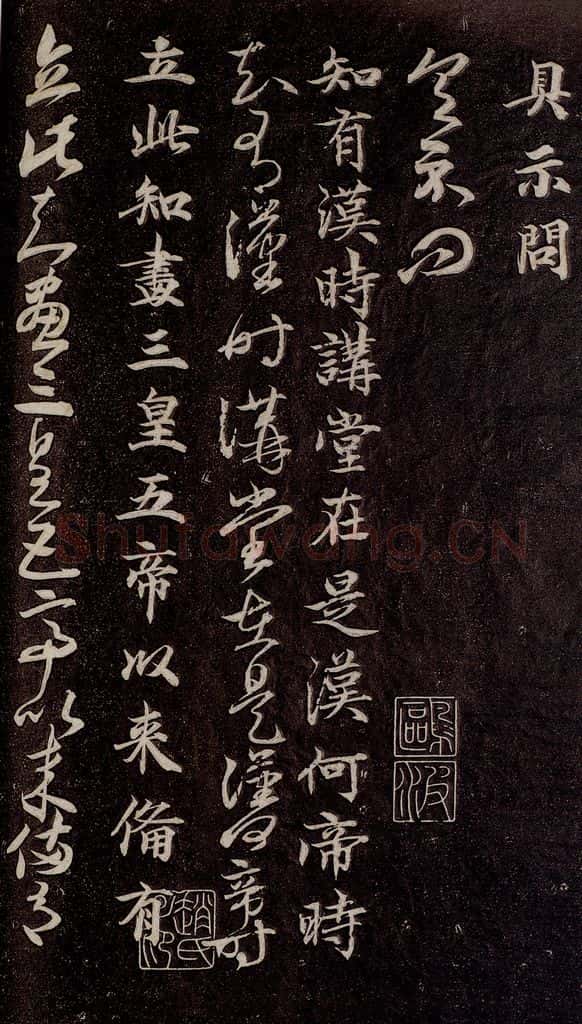 具示問
具示問
知有漢時講堂在是漢何帝時
知有漢時講堂在是漢何帝時
立此知畫三皇五帝以来備有
立此知畫三皇五帝以来備有
鷗波
趙氏
Shufawang.CN